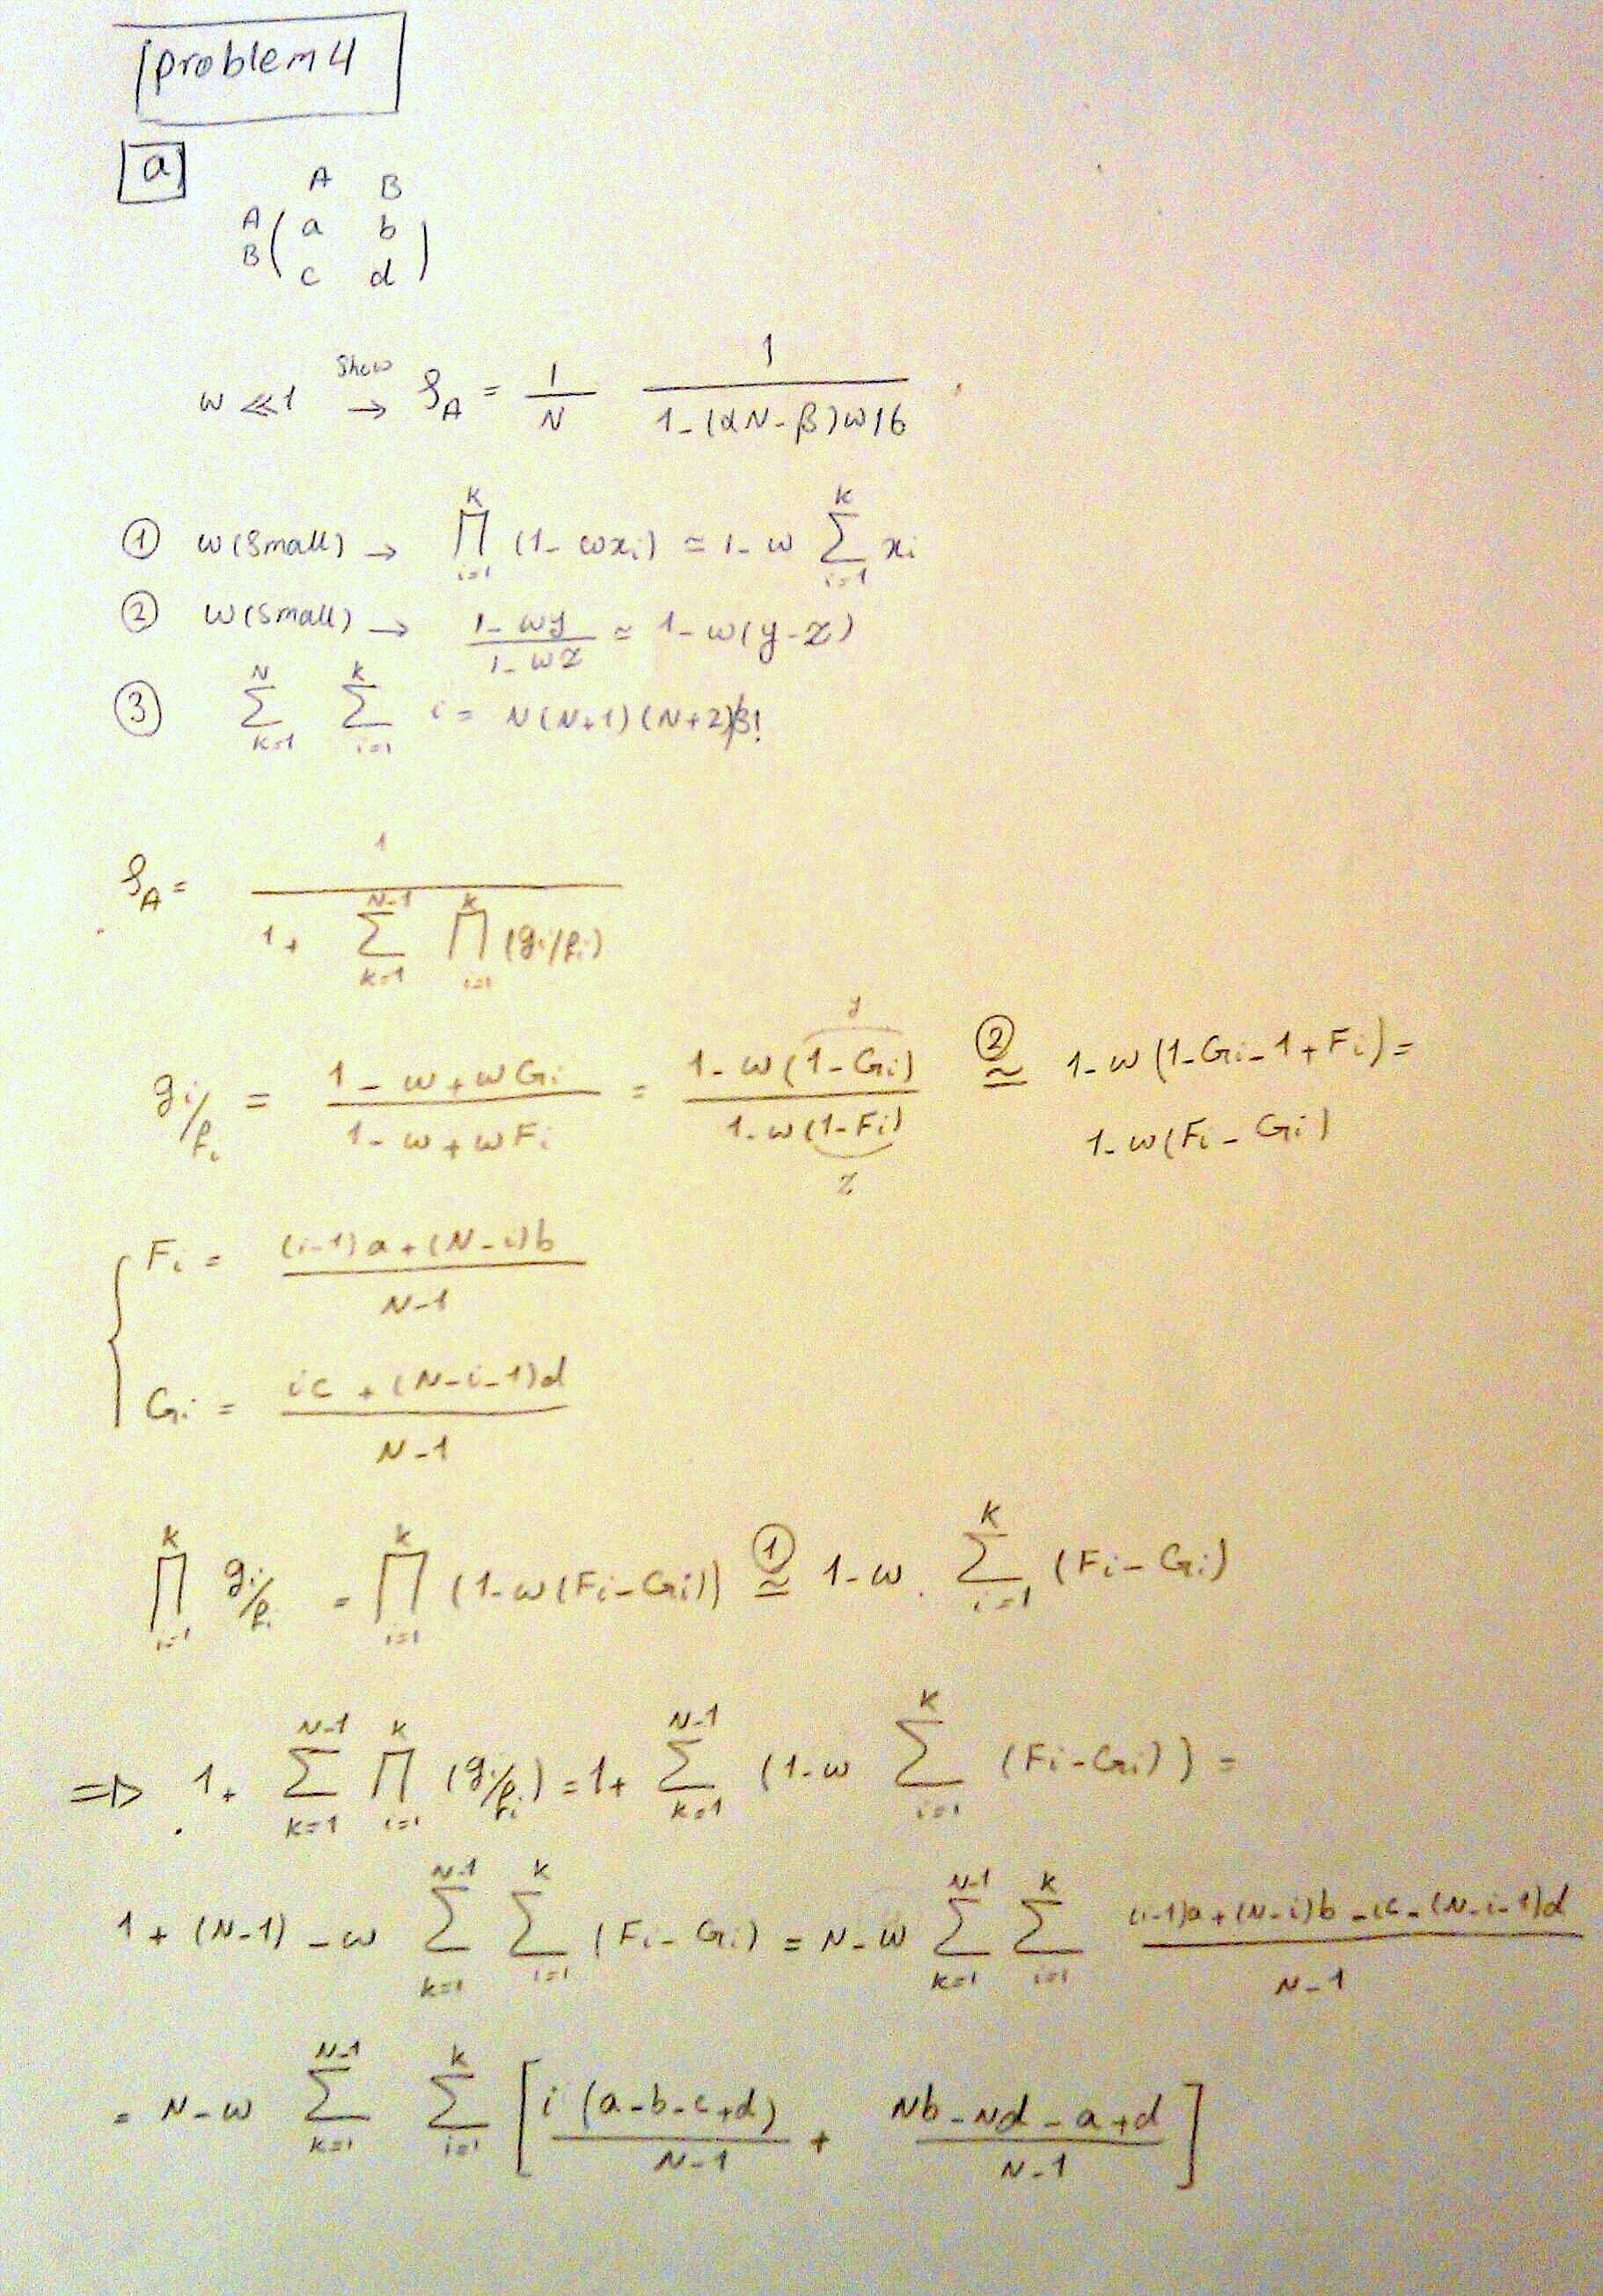 problem 4
a
A B
A ( a b
B ( c d )
w ≪ 1 show → ρ_A = 1/N 1/(1-(αN-β)w/6)
① w (small) → ∏_{i=1}^{k} (1-wx_i) ≃ 1-w ∑_{i=1}^{k} x_i
② w (small) → (1-wy)/(1-wz) ≃ 1-w(y-z)
③ ∑_{k=1}^{N} ∑_{i=1}^{k} i = N(N+1)(N+2)/3!
ρ_A = 1/(1+ ∑_{k=1}^{N-1} ∏_{i=1}^{k} (g_i/f_i))
g_i/f_i = (1-w+wG_i)/(1-w+wF_i) = (1-w(1-G_i))/(1-w(1-F_i)) y z ②≃ 1-w(1-G_i-1+F_i) =
1-w(F_i-G_i)
{ F_i = ((i-1)a+(N-i)b)/(N-1)
G_i = (ic+(N-i-1)d)/(N-1)
∏_{i=1}^{k} g_i/f_i = ∏_{i=1}^{k} (1-w(F_i-G_i)) ①≃ 1-w. ∑_{i=1}^{k} (F_i-G_i)
⇒ 1+ ∑_{k=1}^{N-1} ∏_{i=1}^{k} (g_i/f_i) = 1+ ∑_{k=1}^{N-1} (1-w ∑_{i=1}^{k} (F_i-G_i)) =
1+(N-1)-w ∑_{k=1}^{N-1} ∑_{i=1}^{k} (F_i-G_i) = N-w ∑_{k=1}^{N-1} ∑_{i=1}^{k} ((i-1)a+(N-i)b-ic-(N-i-1)d)/(N-1)
= N-w ∑_{k=1}^{N-1} ∑_{i=1}^{k} [ i(a-b-c+d)/(N-1) + (Nb-Nd-a+d)/(N-1) ]